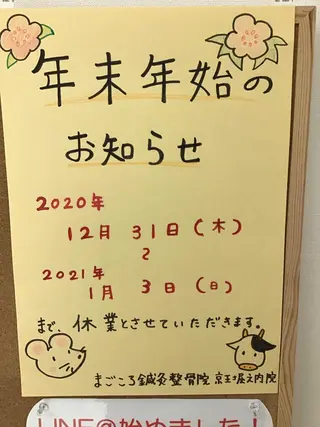 年末年始の
お知らせ
2020年
12月 31日(木)
〜
2021年
1月 3日(日)
まで、休業とさせていただきます。
まごころ鍼灸整骨院 京王堀之内院
LINE@始めました！